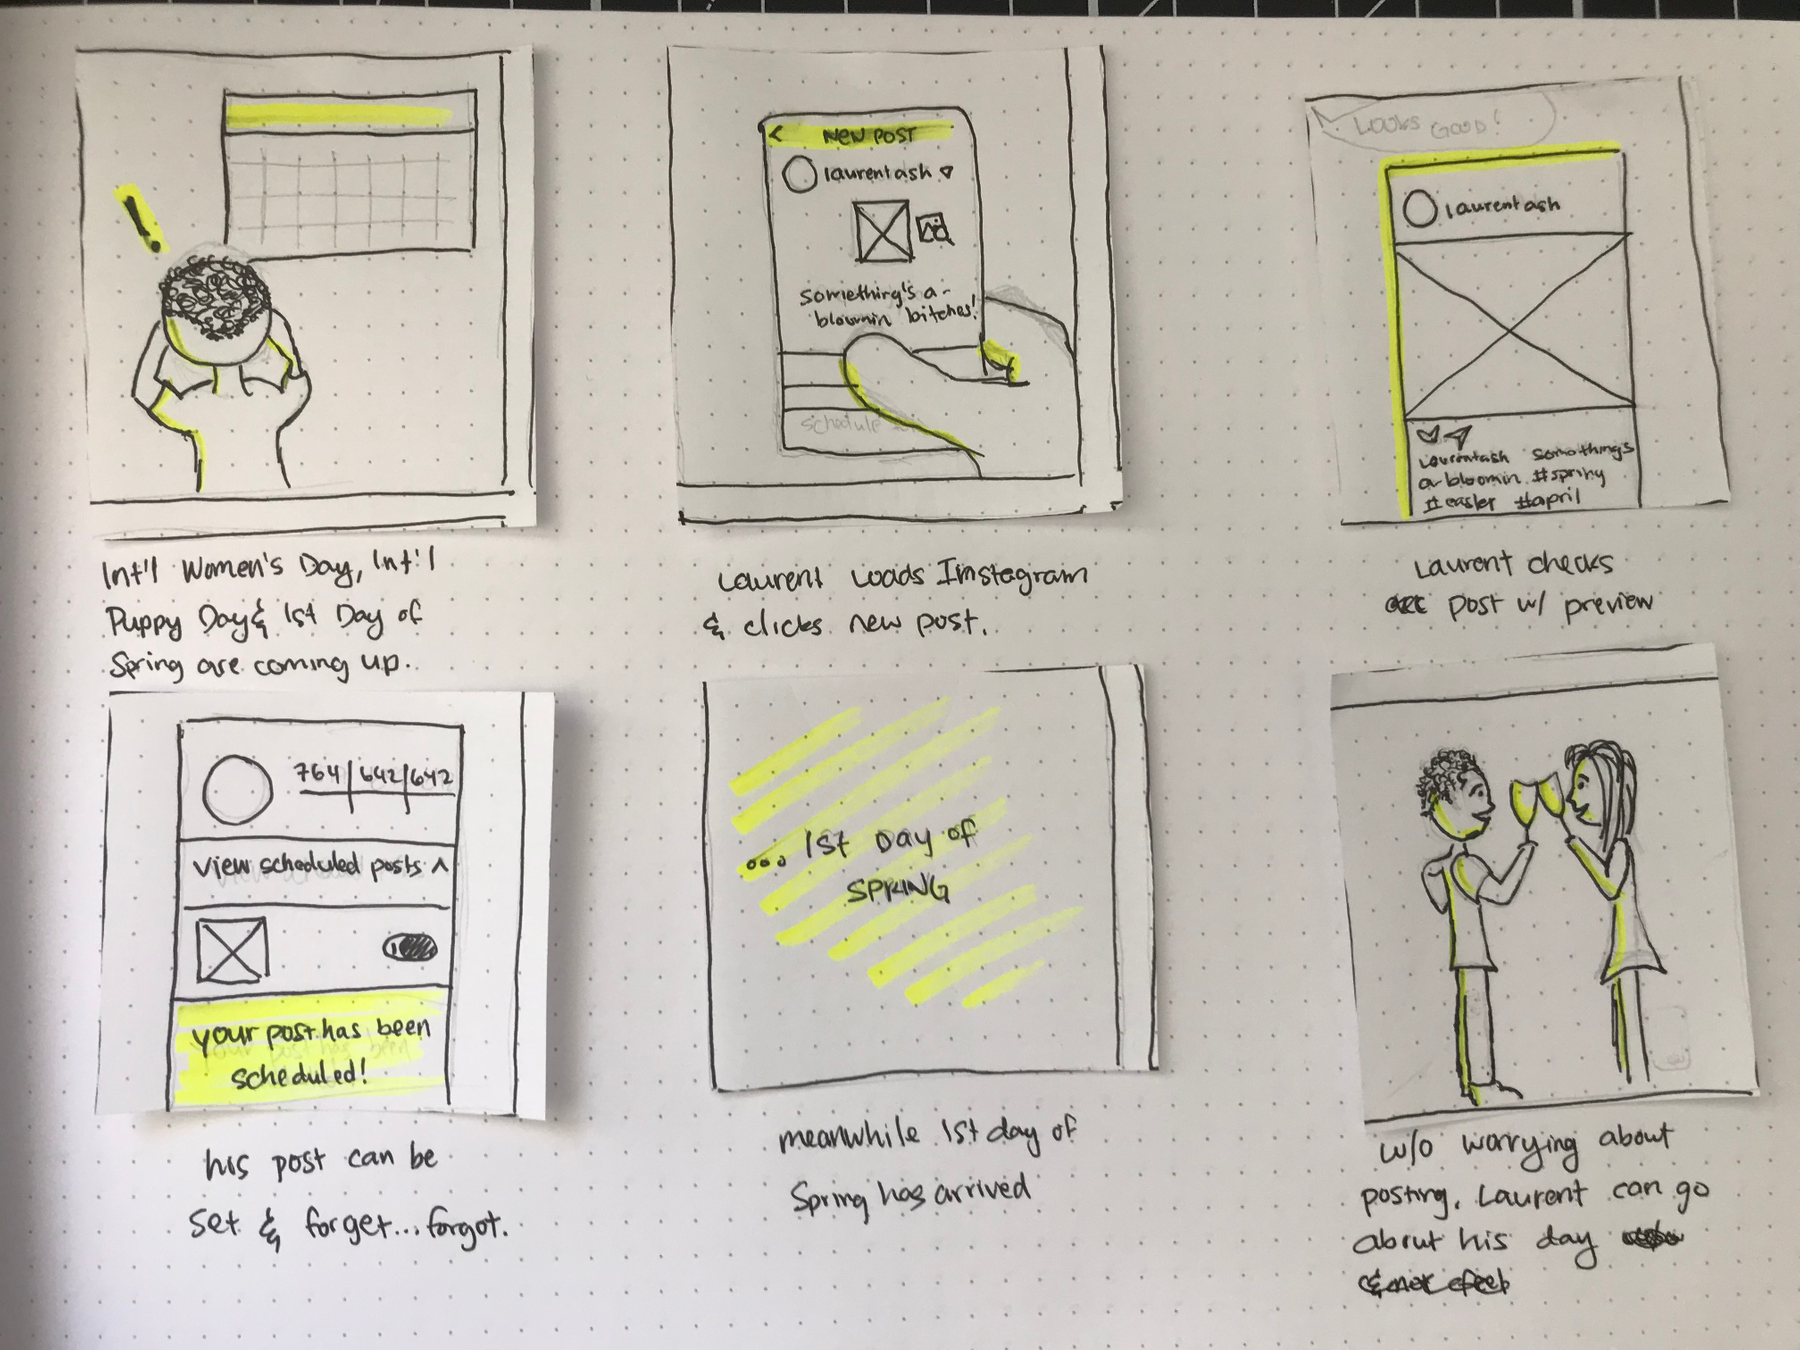 !
Int'l Women's Day, Int'l
Puppy Day & 1st Day of
Spring are coming up..
< NEW POST
laurentash
something's a-
bloomin bitches!
schedule
Laurent Loads Instagram
& clicks new post.
LOOKS GOOD!
laurentash
laurentash somethings
a-bloomin #spring
#easter #april
Laurent checks
post w/ preview
764 | 642 | 642
view scheduled posts ^
your post has been
scheduled!
his post can be
set & forget...forgot.
... 1st Day of
SPRING
meanwhile 1st day of
Spring has arrived
w/o worrying about
posting, Laurent can go
about his day